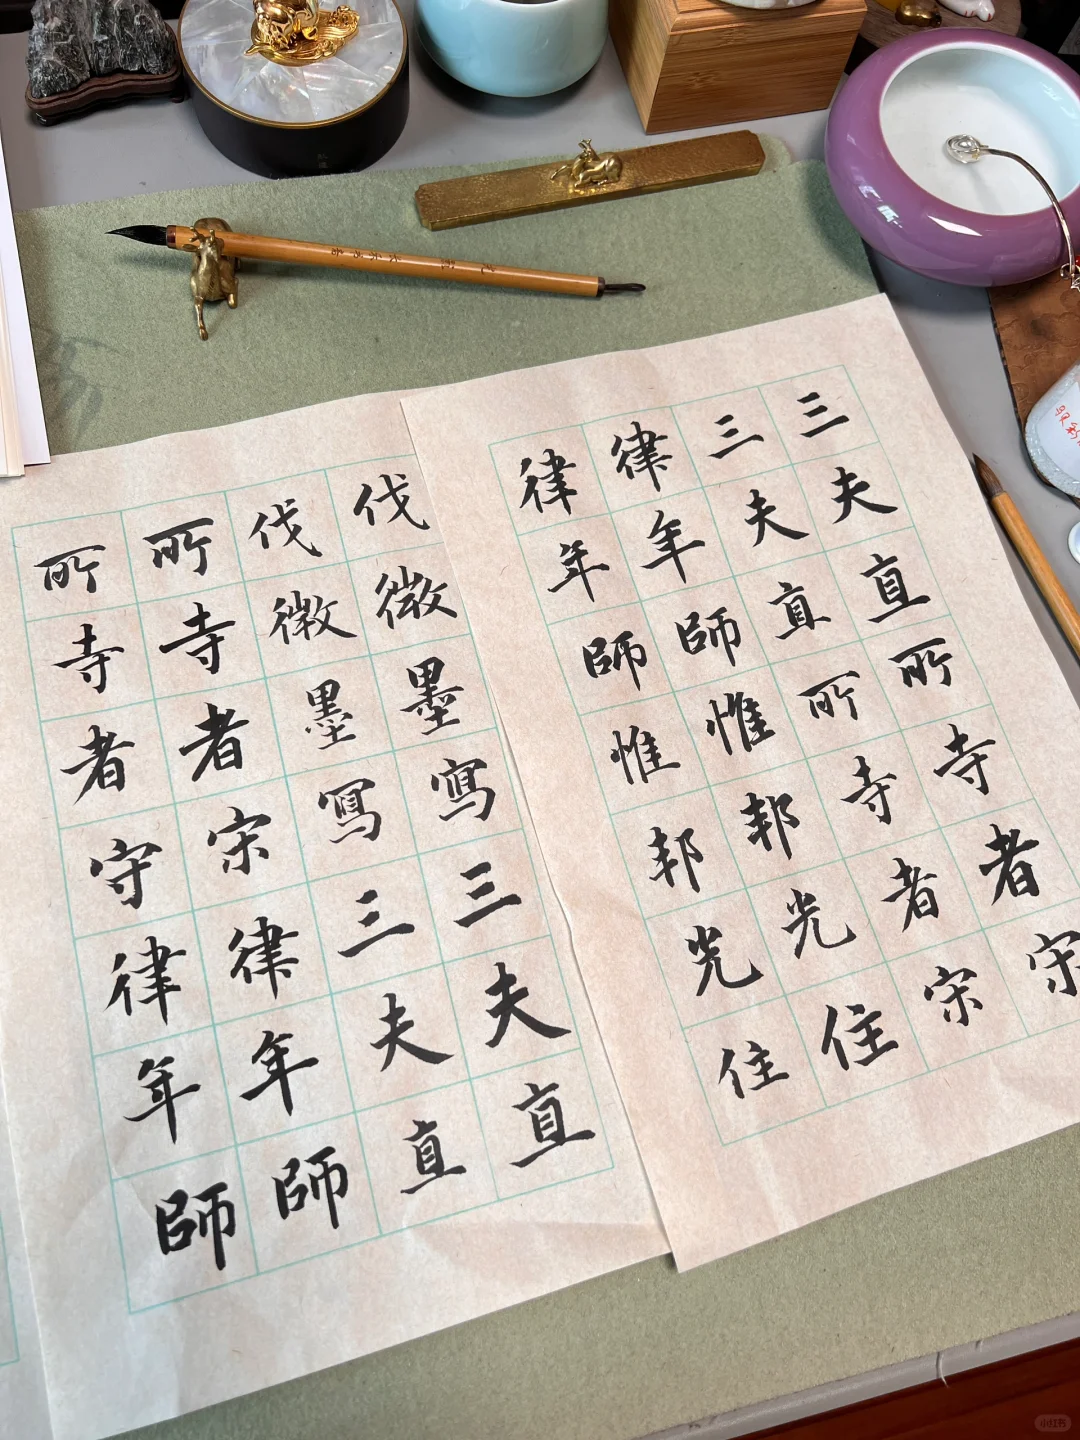 三夫直所寺者守
三夫直所寺者宋
律年師惟邦光住
律年師惟邦光住
伐徵墨寫三夫直
伐徵墨寫三夫直
所寺者宋律年師
所寺者守律年師
小红书